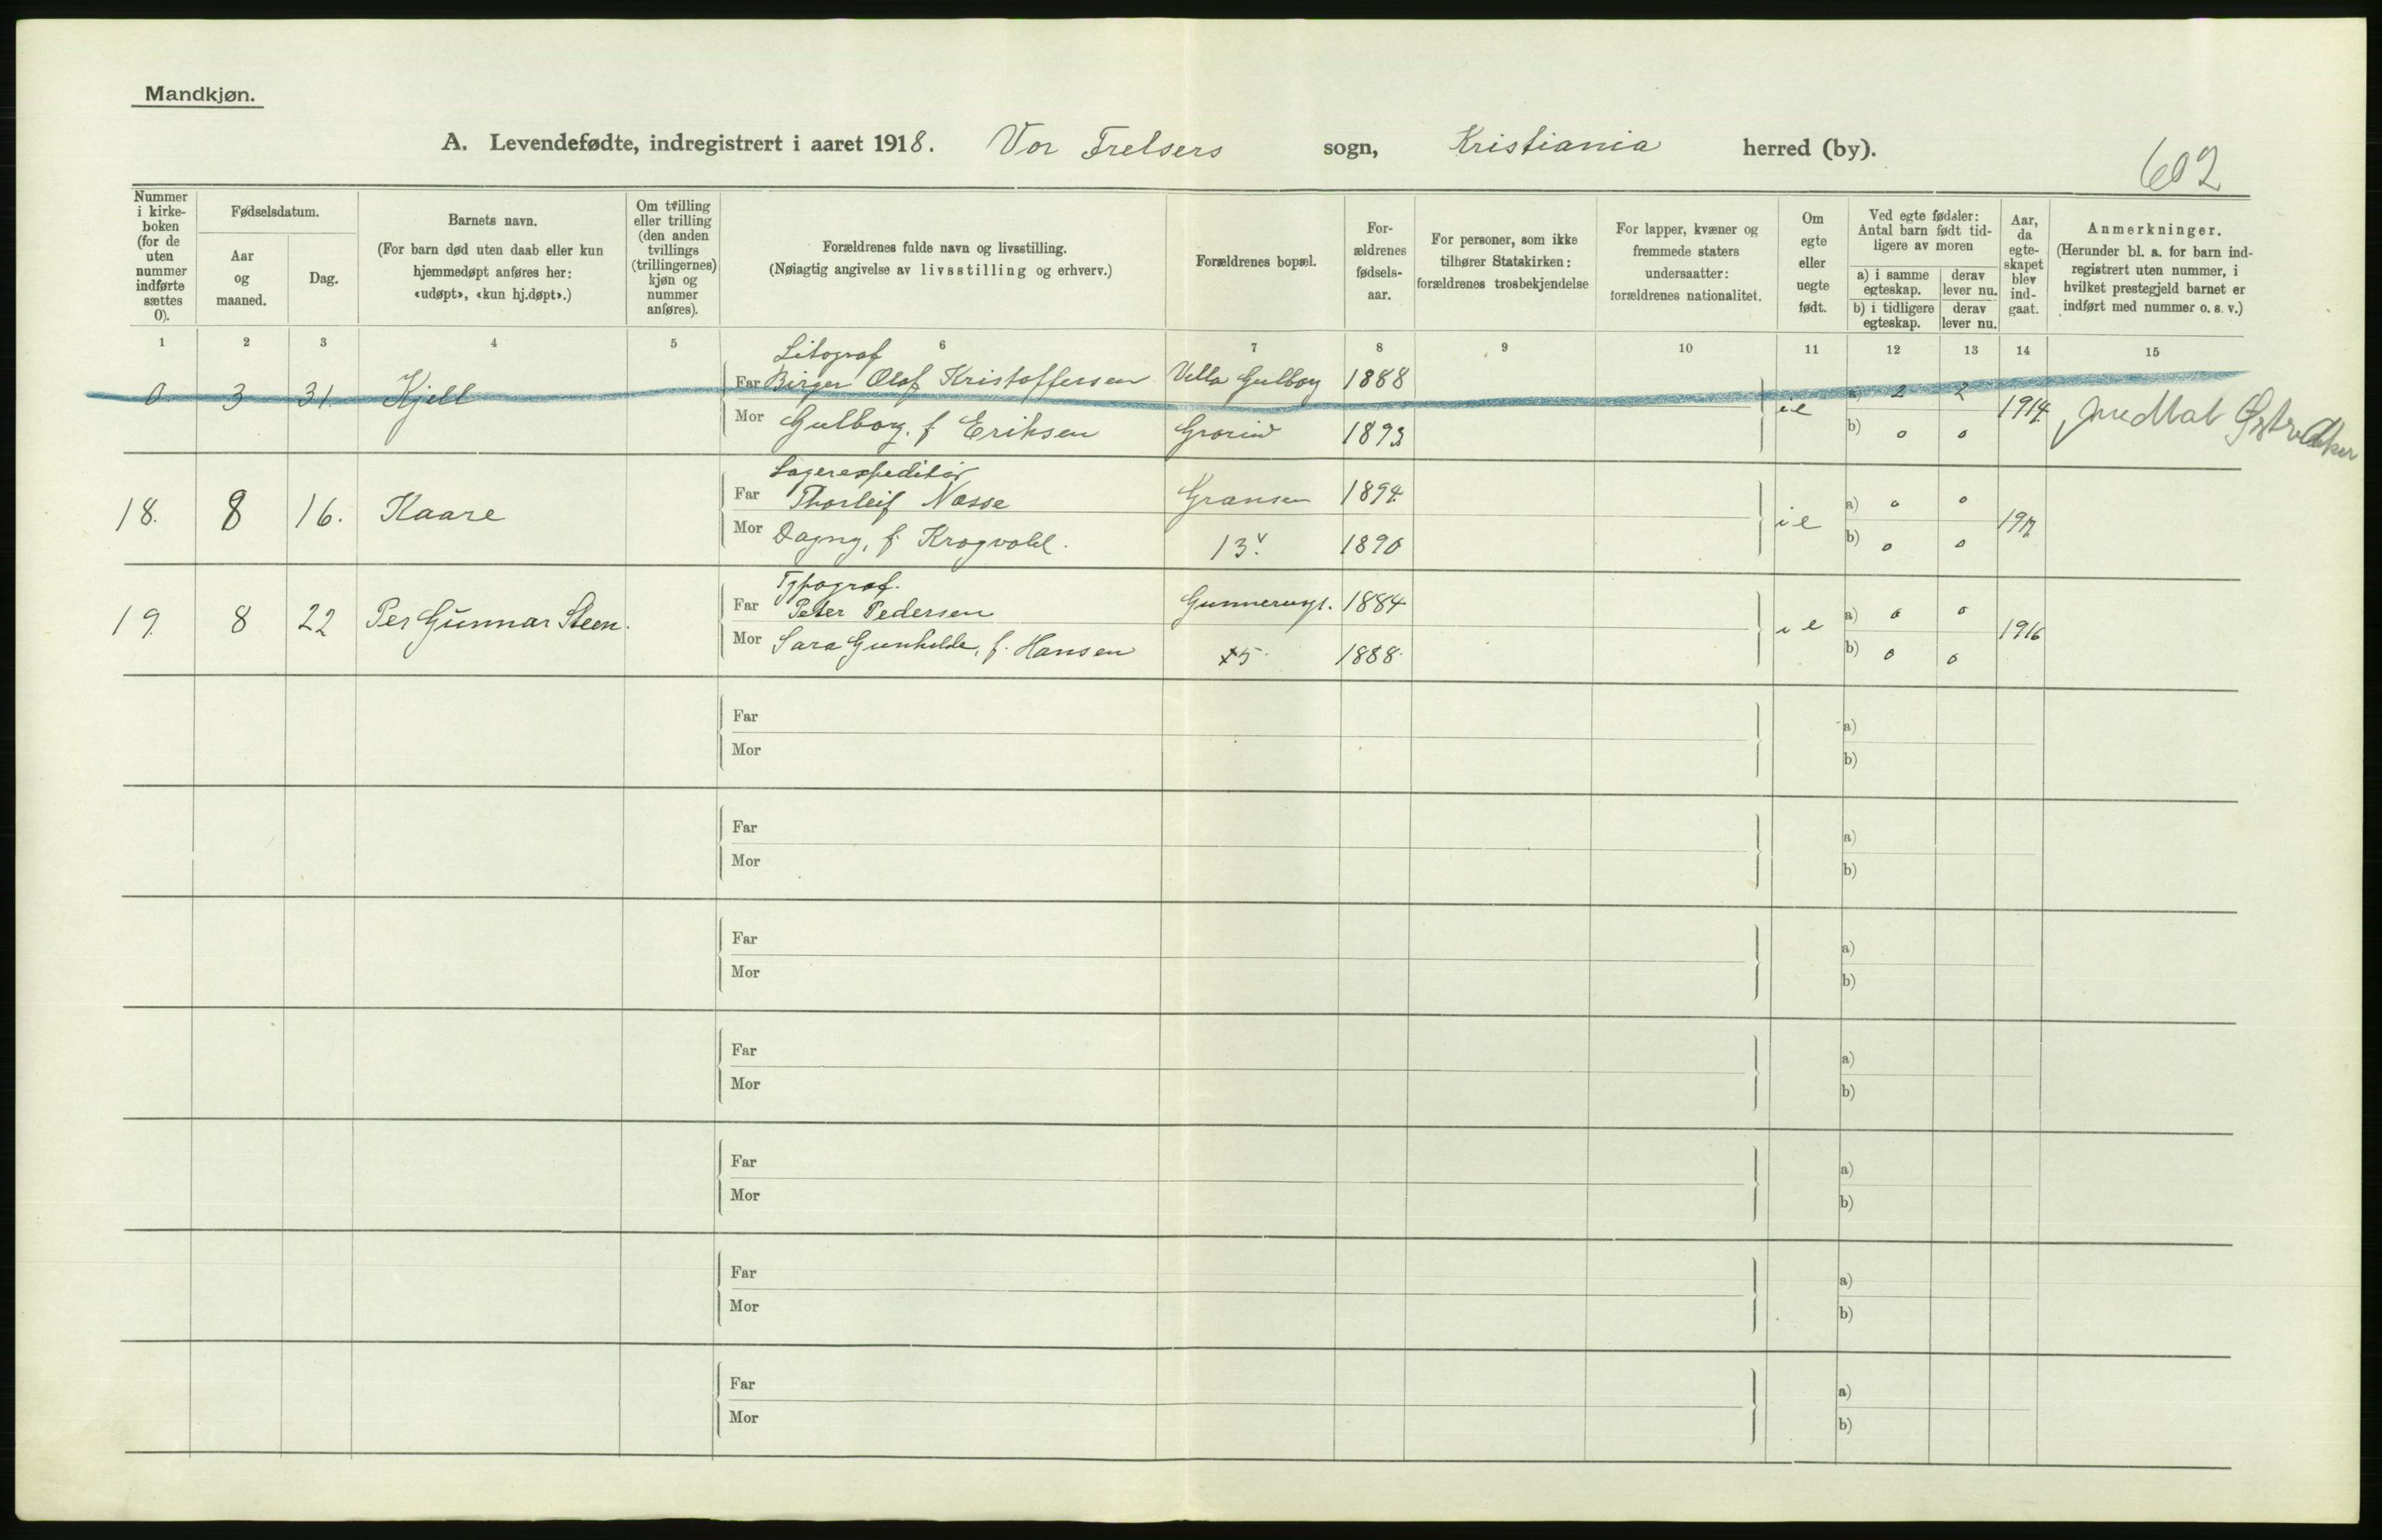 Mandkjøn.
A. Levendefødte, indregistrert i aaret 1918. Vor Frelsers sogn, Kristiania herred (by).
602
Nummer i kirke-boken (for de uten nummer indførte sættes 0).
Fødselsdatum.
Aar og maaned.
Dag.
Barnets navn.
(For barn død uten daab eller kun hjemmedøpt anføres her: «udøpt», «kun hj.døpt».)
Om tvilling eller trilling (den anden tvillings (trillingernes) kjøn og nummer anføres).
Forældrenes fulde navn og livsstilling.
(Nøiagtig angivelse av livsstilling og erhverv.)
Forældrenes bopæl.
For-ældrenes fødsels-aar.
For personer, som ikke tilhører Statskirken: forældrenes trosbekjendelse
For lapper, kvæner og fremmede staters undersaatter: forældrenes nationalitet.
Om egte eller uegte født.
Ved egte fødsler: Antal barn født tid-ligere av moren
a) i samme egteskap.
derav lever nu.
b) i tidligere egteskap.
derav lever nu.
Aar, da egte-skapet blev ind-gaat.
Anmerkninger.
(Herunder bl. a. for barn ind-registrert uten nummer, i hvilket prestegjeld barnet er indført med nummer o. s. v.)
1 2 3 4 5 6 7 8 9 10 11 12 13 14 15
Litograf
0. 3 31. Kjell Far Birger Olaf Kristoffersen Villa Gulborg 1888 a) 2 2
Mor Gulborg, f. Eriksen Grorud 1893 i e b) 0 0 1914 Østre Aker
Lagerexpeditør
18. 8 16. Kaare Far Thorleif Nasse Grønsen 1894 a) 0 0
Mor Dagny, f. Krogvold. 13 V 1890 i e b) 0 0 1917
Typograf.
19. 8 22 Per Gunnar Steen. Far Peter Pedersen Gunnerusgt. 1884 a) 0 0
Mor Sara Gunhilde, f. Hansen 1888. i e b) 0 0 1916
Far a)
Mor b)
Far a)
Mor b)
Far a)
Mor b)
Far a)
Mor b)
Far a)
Mor b)
Far a)
Mor b)
Far a)
Mor b)